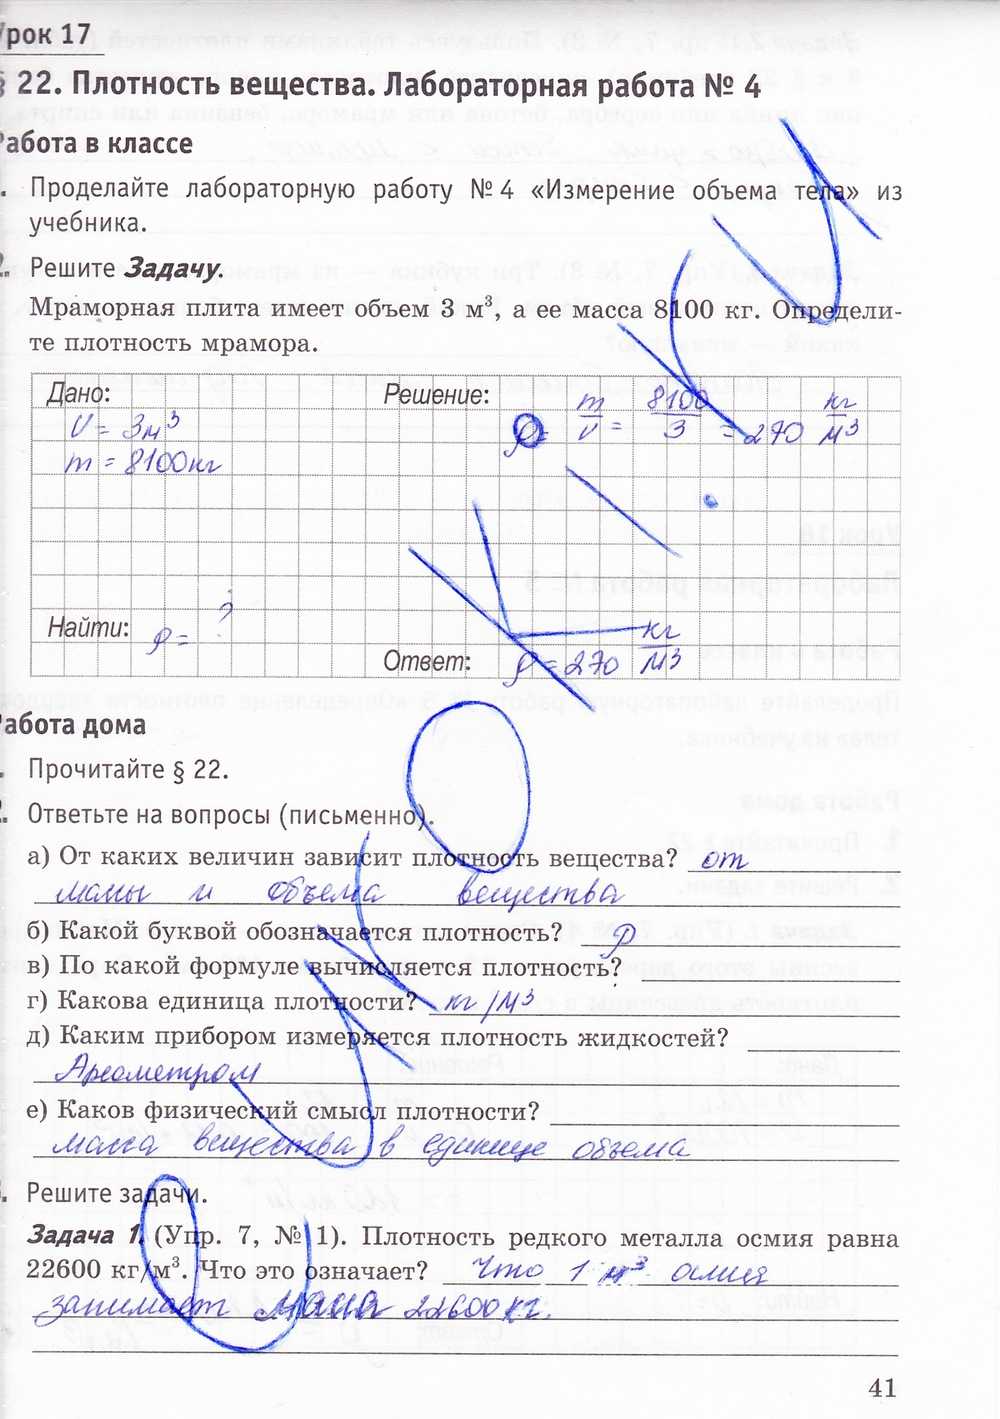 Урок 17
§ 22. Плотность вещества. Лабораторная работа № 4
Работа в классе
Проделайте лабораторную работу № 4 «Измерение объема тела» из
учебника.
2. Решите Задачу.
Мраморная плита имеет объем 3 м³, а ее масса 8100 кг. Определи-
те плотность мрамора.
Дано:
V = 3м³
m = 8100кг
Решение:
ρ = m/v = 8100/3 = 270 кг/м³
Найти: ρ = ?
Ответ: ρ = 270 кг/м³
Работа дома
Прочитайте § 22.
Ответьте на вопросы (письменно).
а) От каких величин зависит плотность вещества? от
массы и объема вещества
б) Какой буквой обозначается плотность? ρ
в) По какой формуле вычисляется плотность?
г) Какова единица плотности? кг/м³
д) Каким прибором измеряется плотность жидкостей?
Ареометром
е) Каков физический смысл плотности?
масса вещества в единице объема
Решите задачи.
Задача 1. (Упр. 7, № 1). Плотность редкого металла осмия равна
22600 кг/м³. Что это означает? Что 1 м³ осмия
занимает масса 22600 кг.
41